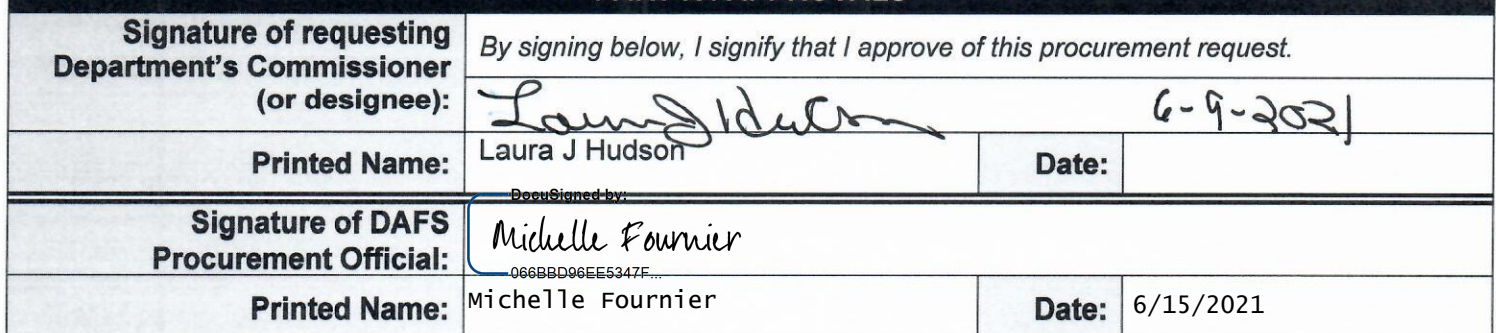 Signature of requesting
Department's Commissioner
(or designee):
By signing below, I signify that I approve of this procurement request.
Laura J Hudson 6-9-2021
Printed Name: Laura J Hudson Date:
DocuSigned by:
Signature of DAFS
Procurement Official:
Michelle Fournier
066BBD96EE5347F...
Printed Name: Michelle Fournier Date: 6/15/2021